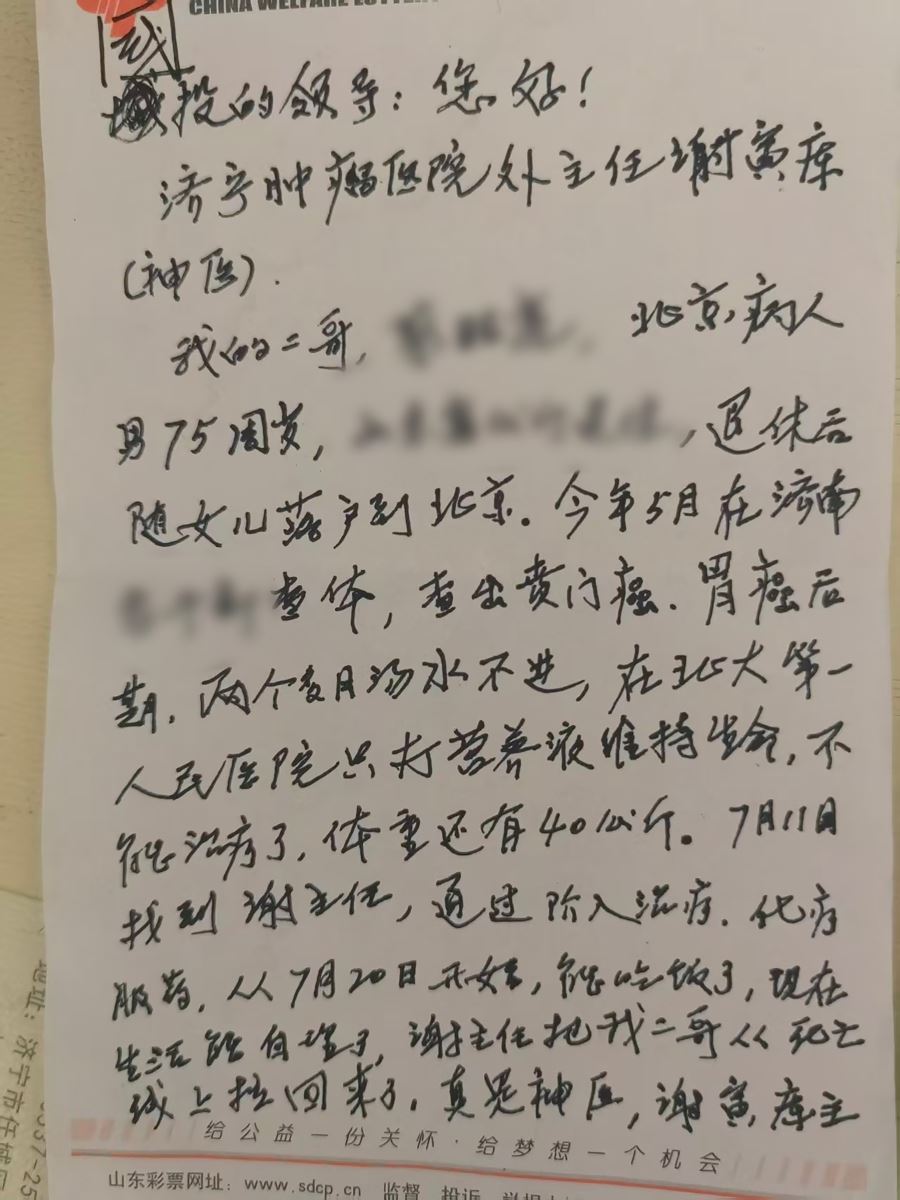 CHINA WELFARE LOTTERY
城投的领导：您好！
济宁肿瘤医院外主任谢寅库
(神医).
我的二哥, 北京病人
男75周岁, ，退休后
随女儿落户到北京。今年5月在济南
查体，查出贲门癌.胃癌后
期.两个多月汤水不进，在北大第一
人民医院只打营养液维持生命,不
能治疗了,体重还有40公斤。7月11日
找到谢主任，通过阶入治疗.化疗
服药,从7月20日开始,能吃饭了,现在
生活能自理了,谢主任把我二哥从死亡
线上拉回来了.真是神医,谢寅库主
给公益一份关怀·给梦想一个机会
山东彩票网址：www.sdcp.cn 监督 投诉
地址：济宁市任城区
0537-25